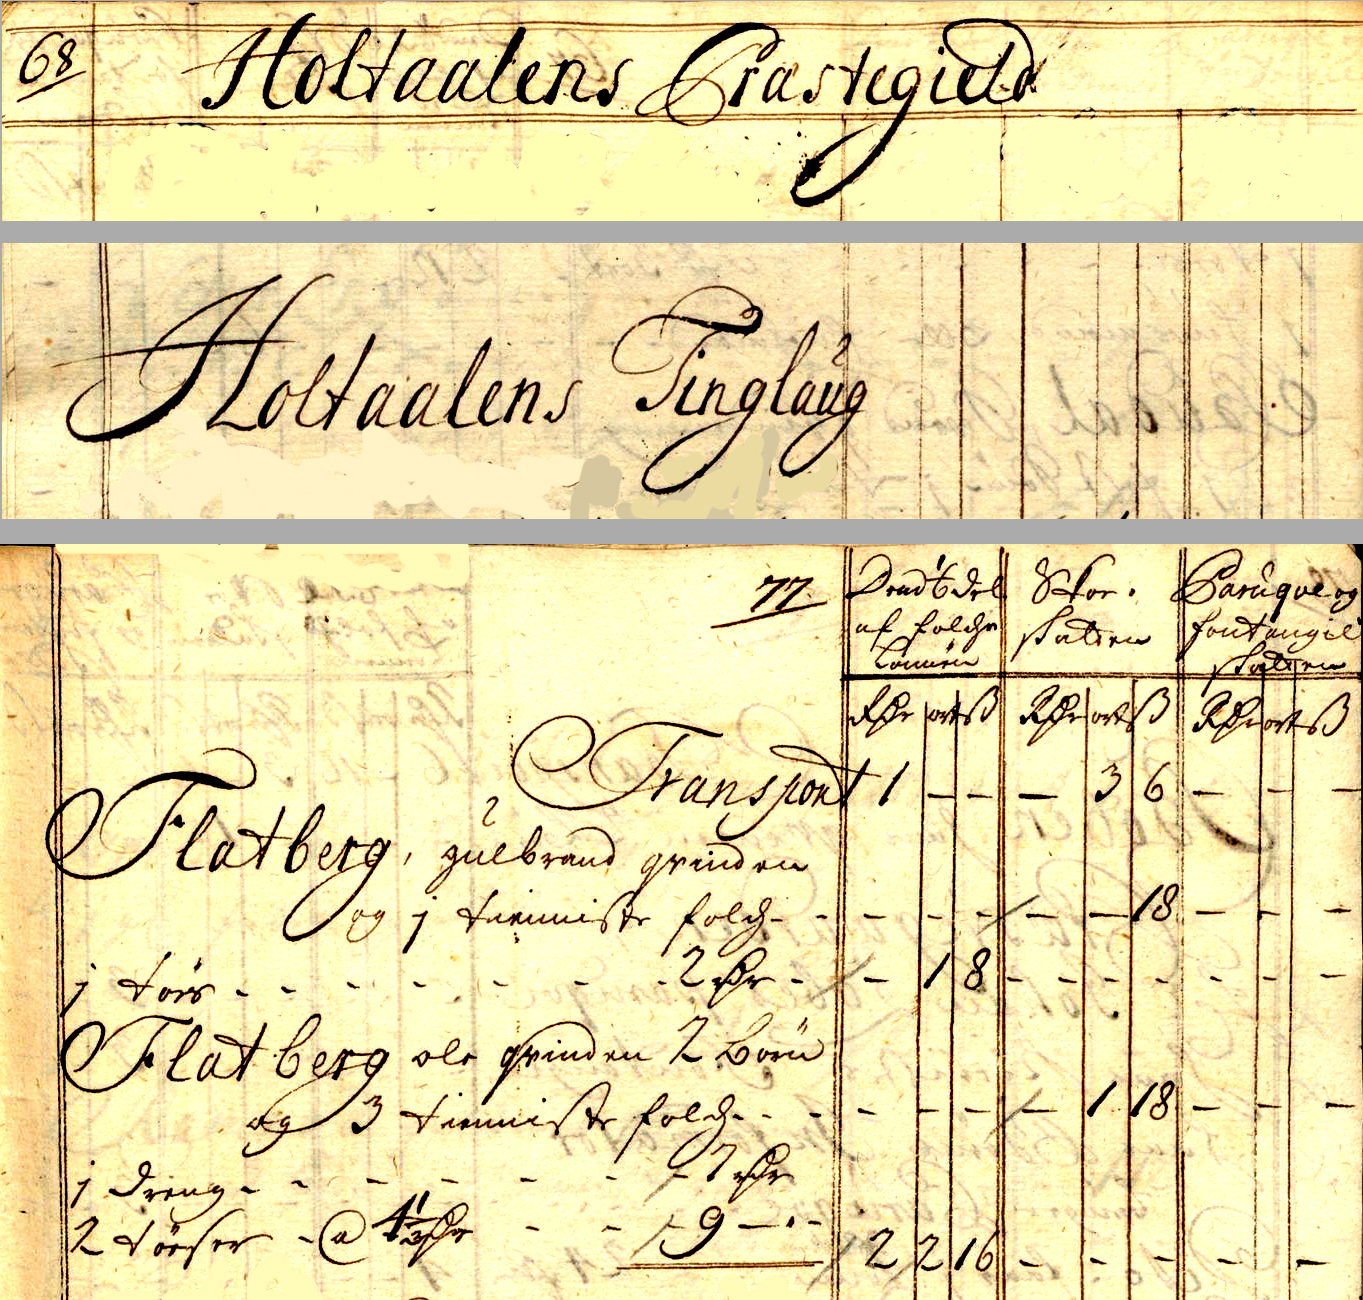 68 Holtaalens Præstegield
Holtaalens Tinglaug
77
 6te deel af folche Lønnen
Skoe skatten
Paruque og fontangie skatten
Rdr ort ß Rdr ort ß Rdr ort ß
Transport 1 - - - 3 6 - - -
Flatberg, gulbrand qvinden
og j tienniste folch - - - - - - - 18 - - -
j tøs - - - - - - - 2 Rdr - - 1 8 - - - - - - -
Flatberg ole qvinden 2 børn
og 3 tienniste folch - - - - - - - 1 18 - - -
j dreng - - - - - - 7 Rdr
2 tøeser - @ 4½ Rdr - - 9 - - - 2 2 16 - - - - - -